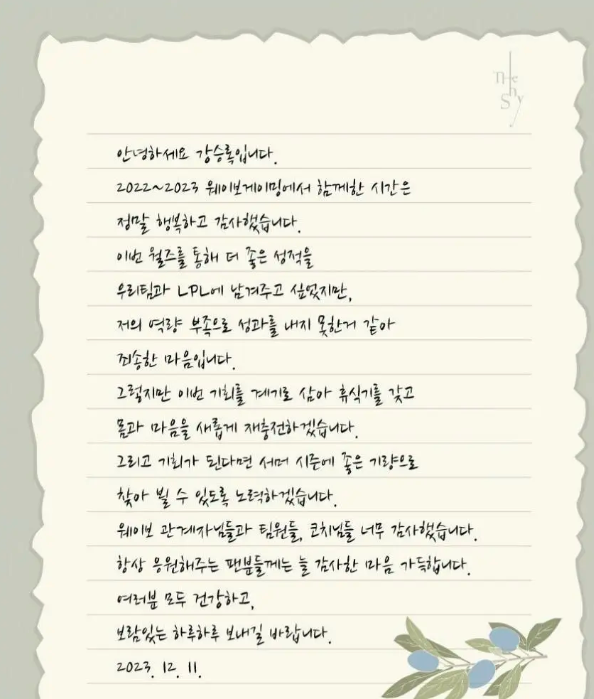 The
Shy
안녕하세요 강승록입니다.
2022~2023 웨이보게이밍에서 함께한 시간은
정말 행복하고 감사했습니다.
이번 월즈를 통해 더 좋은 성적을
우리팀과 LPL에 남겨주고 싶었지만,
저의 역량 부족으로 성과를 내지 못한거 같아
죄송한 마음입니다.
그렇지만 이번 기회를 계기로 삼아 휴식기를 갖고
몸과 마음을 새롭게 재충전하겠습니다.
그리고 기회가 된다면 서머 시즌에 좋은 기량으로
찾아 뵐 수 있도록 노력하겠습니다.
웨이보 관계자님들과 팀원들, 코치님들 너무 감사했습니다.
항상 응원해주는 팬분들께는 늘 감사한 마음 가득합니다.
여러분 모두 건강하고,
보람있는 하루하루 보내길 바랍니다.
2023. 12. 11.